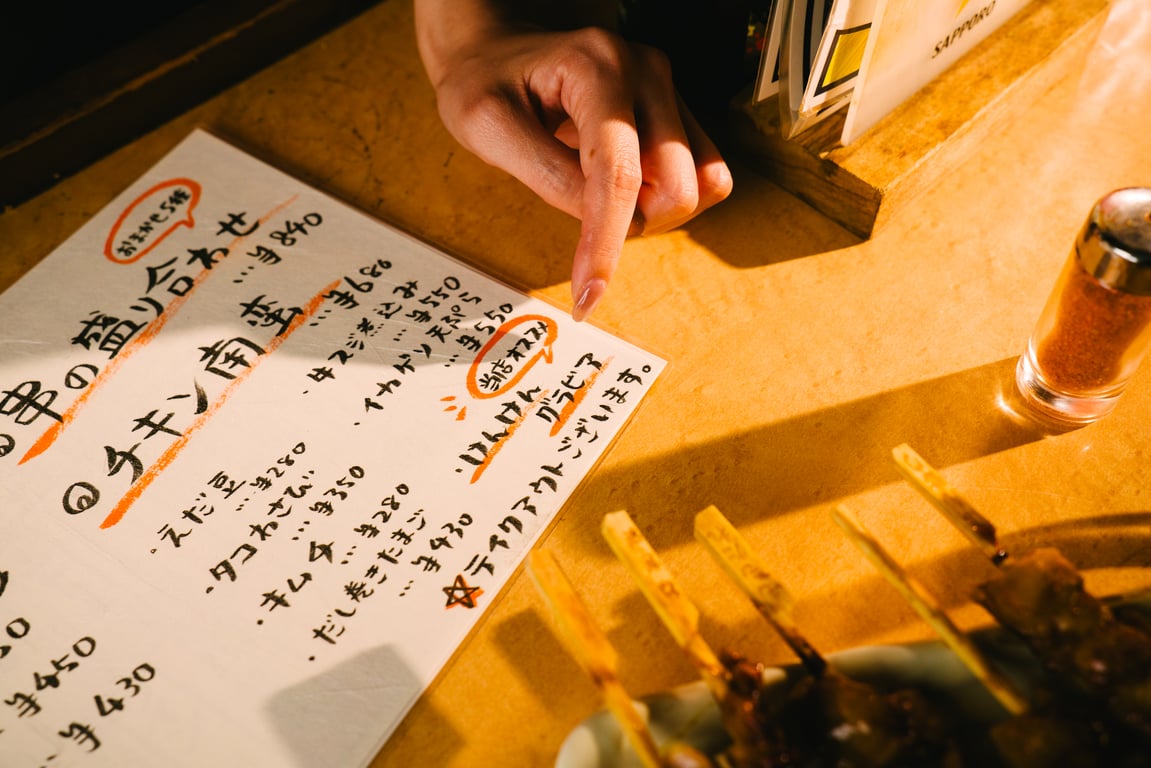 おまかせ5種
串の盛り合わせ
…¥840
◎チキン南蛮
…¥680
・牛スジ煮込み
…¥550
・イカゲソ天ぷら
…¥550
・えだ豆…¥280
・タコわさび
…¥350
・キムチ…¥280
・だし巻きたまご
…¥430
当店オススメ
・けんけん
グラビア
☆テイクアウト
います。
¥450
¥430
SAPPORO